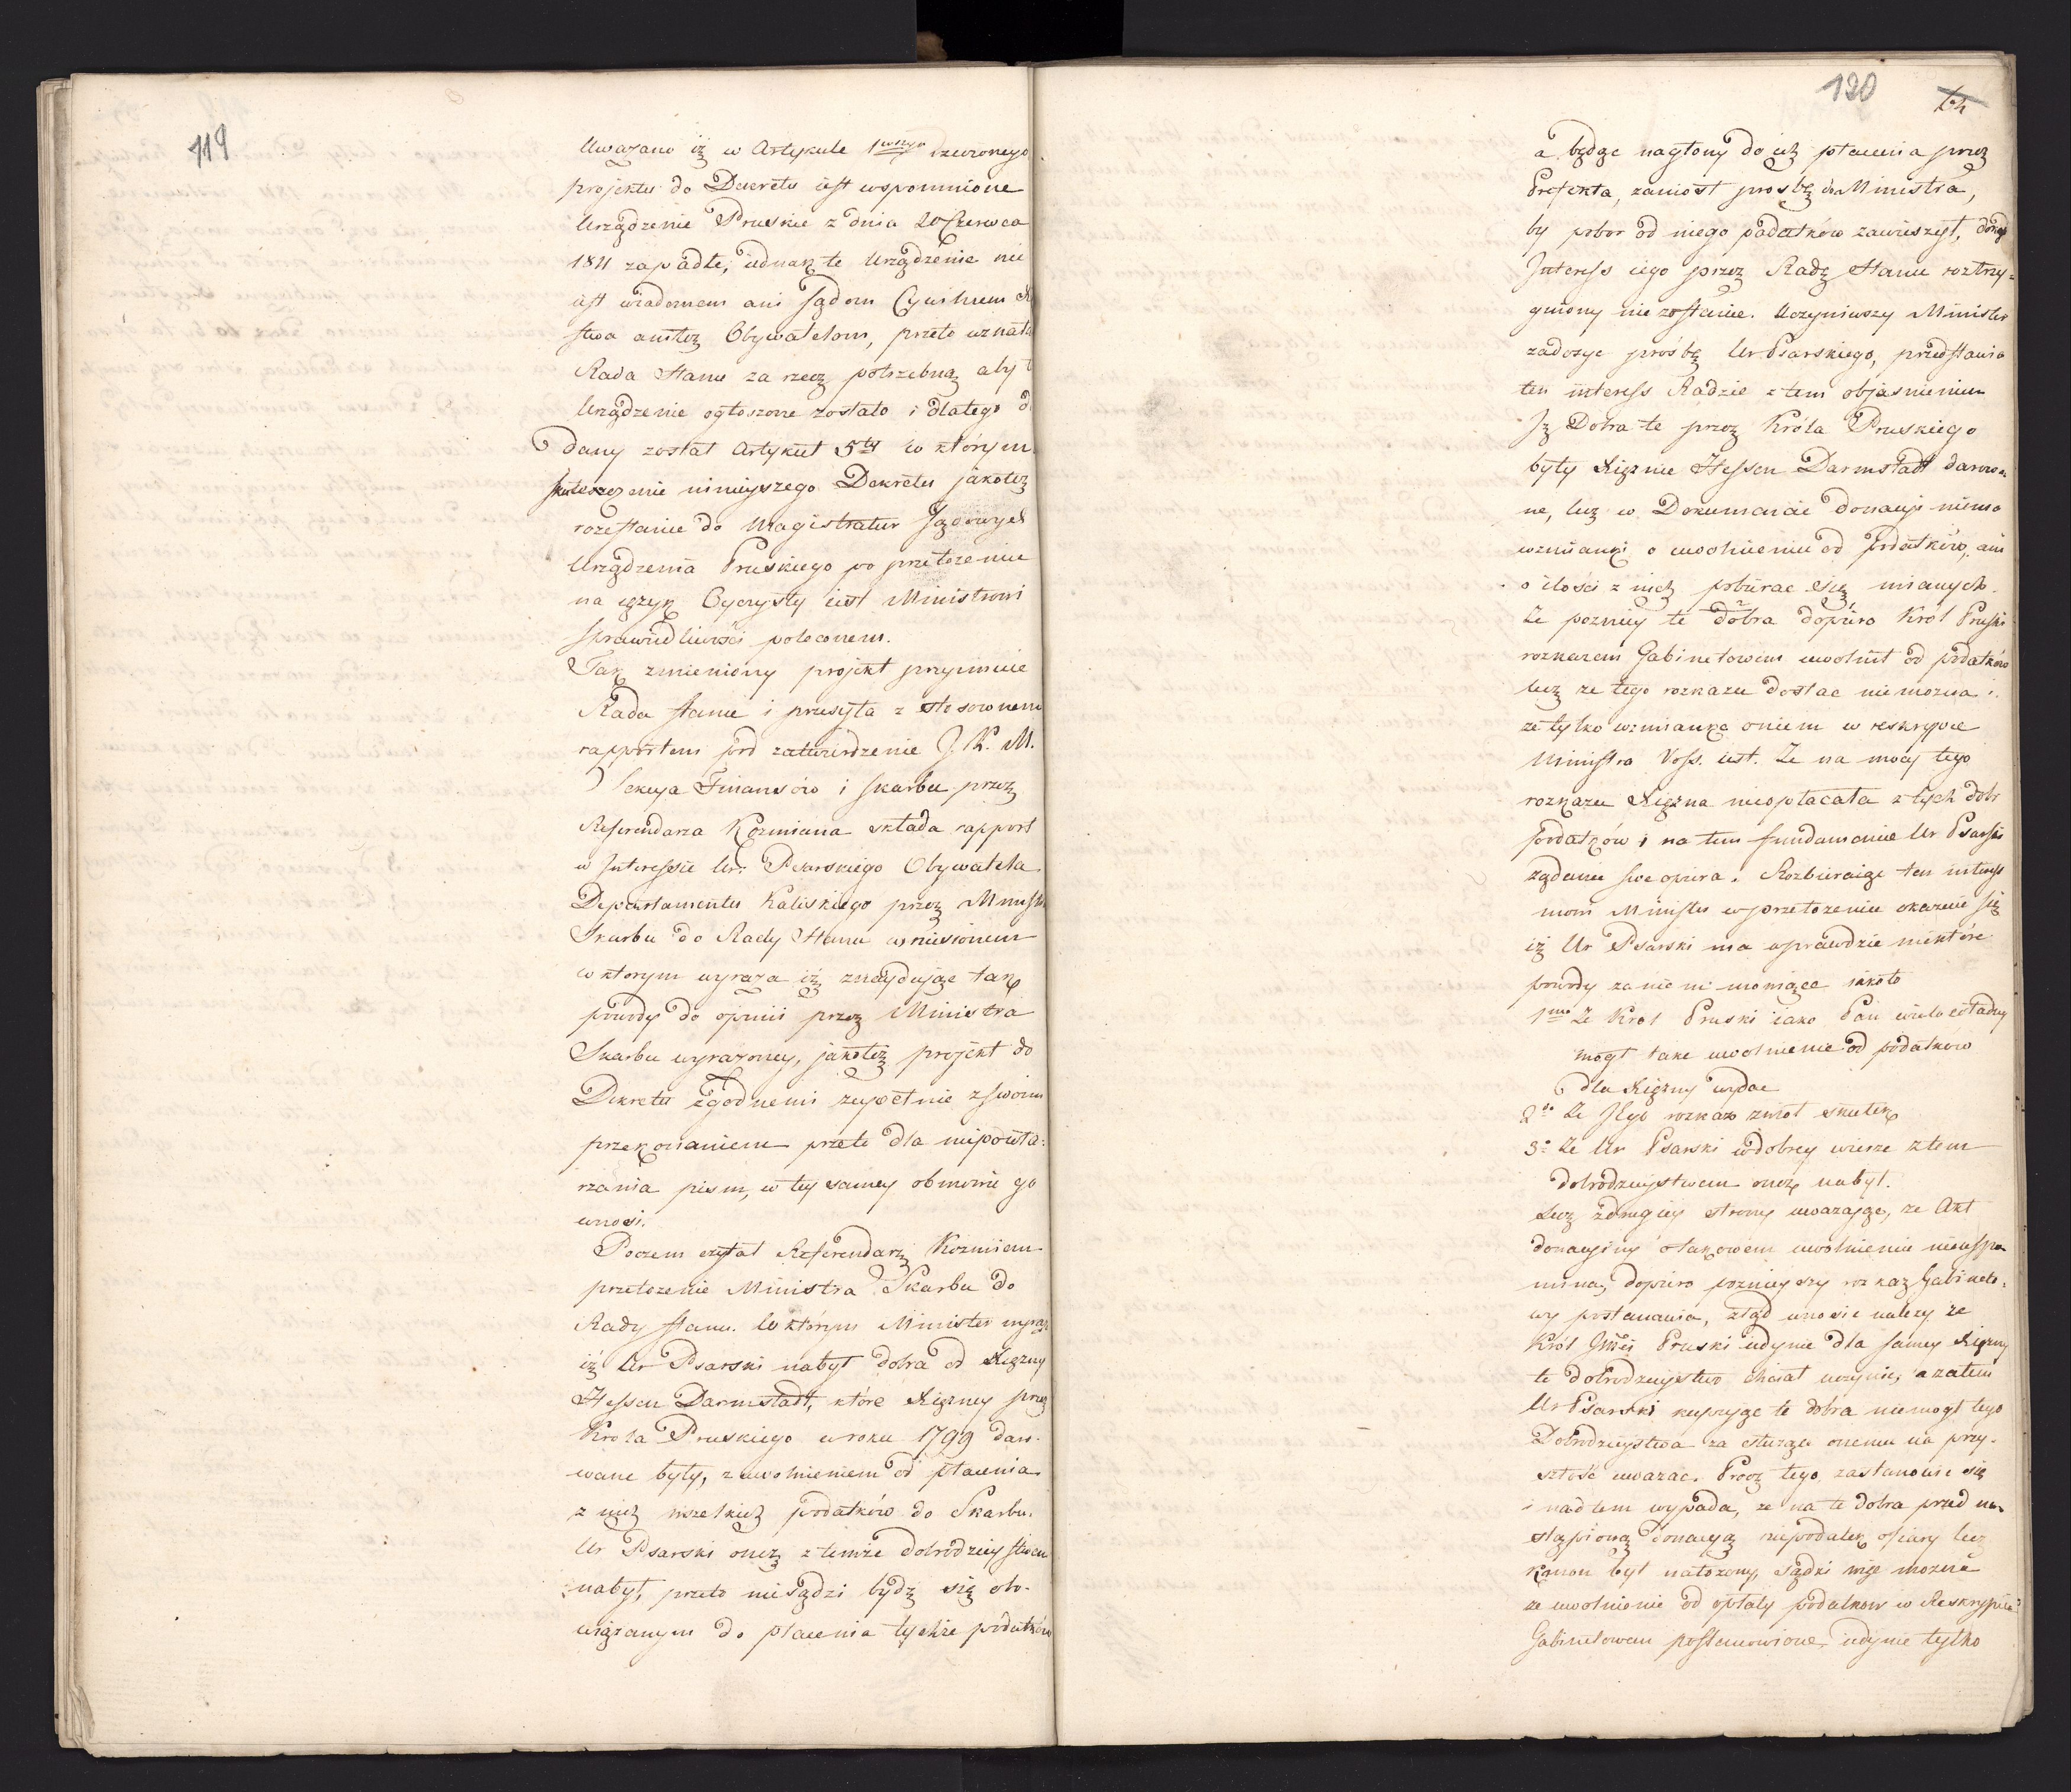 119
Uważano iż w Artykule 1wszym rzeczonego
projektu do Dekretu iest wspomnione
Urządzenie Pruskie z dnia 20 Czerwca
1811 zapadłe, iednak te Urządzenie nie
iest wiadomem ani Sądom Cywilnem
stwa anitez Obywatelom, przeto uznała
Rada Stanu za rzecz potrzebną aby
Urządzenie ogłoszone zostało i dlatego
dany został Artykuł 5ty w którym
skuteczenie ninieyszego Dekretu jakotez
rozesłanie do Magistratur Sądowych
Urządzenia Pruskiego po przełozeniu
na ięzyk Oyczysty iest Ministrowi
Sprawiedliwości poleconem.
Tak zmieniony projekt przyimuie
Rada Stanu i przesyła z stosownem
rapportem pod zatwierdzenie J. K. M.
Sekcya Finansów i Skarbu przez
Referendarza Kozmiana składa rapport
w Interessie Ur. Psarskiego Obywatela
Departamentu Kaliskiego przez Ministra
Skarbu do Rady Stanu wniesionem
w ktorym wyraza iż znayduiąc tak
powody do opinii przez Ministra
Skarbu wyrazoney, jakotez projekt do
Dekretu zgodnemi zupełnie z swoim
przekonaniem przeto dla niepowta-
rzania pism, w tey samey obmowie go
wnosi.
Poczem czytał Referendarz Kozmian
przełozenie Ministra Skarbu do
Rady Stanu. W którym Minister wyraża
iż Ur Psarski nabył dobra od Xiężny
Hessen Darmstadt, które Xiężney przez
Krola Pruskiego w roku 1799 daro-
wane były, z uwolnieniem od płacenia
z nich wszelkich podatków do Skarbu.
Ur Psarski onez z temże dobrodzieystwem
nabył, przeto nie sądzi bydz się obo-
wiązanym do płacenia tychże podatków
120
a będąc naglony do ich płacenia przez
Prefekta, zaniosł prosbę do Ministra,
by pobor od niego podatków zawieszył, dokąd
Interess iego przez Radę Stanu roztrzy-
gniony nie zostanie. Uczyniwszy Minister
zadosyc prośbę Ur Psarskiego, przedstawia
ten interess Radzie z tem objasnieniem
Iż Dobra te przez Króla Pruskiego
były Xiężnie Hessen Darmstadt darowa-
ne, lecz w Dokumencie donacyi niema
wzmianki o uwolnieniu od podatków, ani
o ilości z nich pobierac się mianych.
Ze pozniey te dobra dopiero Król Pruski
rozkazem Gabinetowem uwolnił od podatków
lecz ze tego rozkazu dostac nie mozna i
ze tylko wzmianka oniem w reskrypcie
Ministra Voss. iest. Ze na mocy tego
rozkazu Xiężna nieopłacała z tych dobr
podatków i na tem fundamencie Ur Psarski
ządanie swe opiera. Rozbieraiąc ten interess
mowi Minister w przełozeniu okazuie się
iż Ur Psarski ma wprawdzie niektóre
powody zaniem mowiące iakoto
1mo Ze Krol Pruski iako Pan wielowładny
mógł take uwolnienie od podatkow
dla Xiężny wydac
2do Ze Jego rozkaz wziął skutek
3o Ze Ur Psarski w dobrey wierze z tem
dobrodzieystwem onez nabył.
Lecz z drugiey strony uwazając, ze Akt
donacyiny otakowem uwolnieniu niewspo-
mina, dopiero poznieyszy rozkaz Gabineto-
wy postanawia, ztąd wnosic nalezy ze
Król Jmść Pruski iedynie dla samey Xiężny
te dobrodzieystwo chciał uczynic, a zatem
Ur Psarski kupuiąc te dobra niemogł tego
Dobrodzieystwa za słuzące onemu na przy-
szłość uwazac. Procz tego zastanowic się
i nad tem wypada, ze na te dobra przed na-
stąpioną donacyą niepodatek ofiary lecz
Kanon był nałozony, sądzic więc mozna
ze uwolnienie od opłaty podatkow w Reskrypcie
Gabinetowem postanowione iedynie tylko